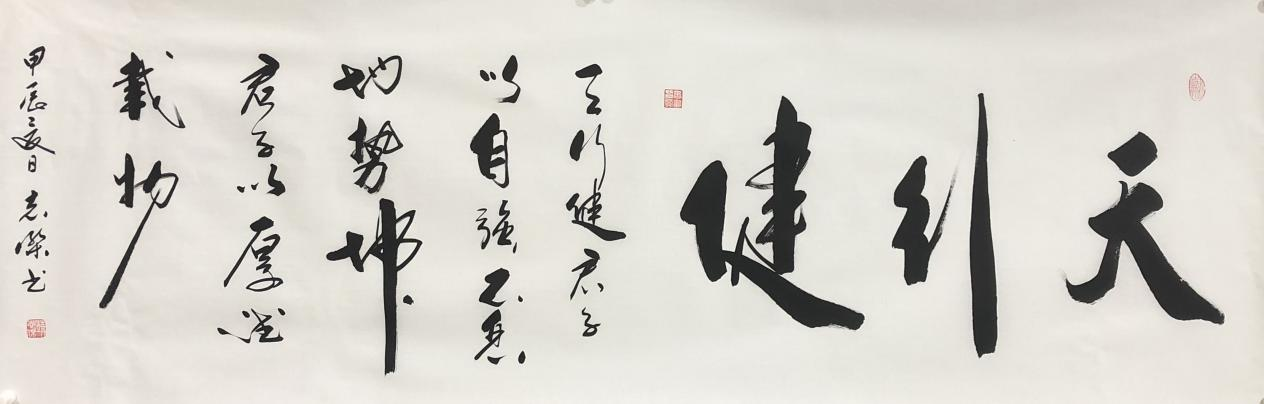 天行健
天行健君子
以自强不息
地势坤
君子以厚德
载物
甲辰夏日志梁书